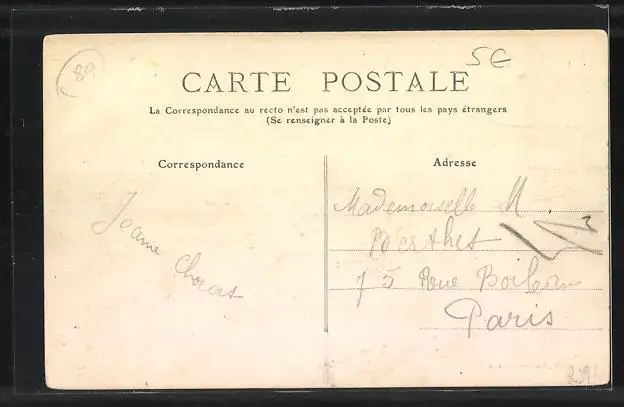 89
5€
CARTE POSTALE
La Correspondance au recto n'est pas acceptée par tous les pays étrangers
(Se renseigner à la Poste)
Correspondance
Adresse
Mademoiselle M.
Berthet
75 Rue Boileau
Paris
Jeanne